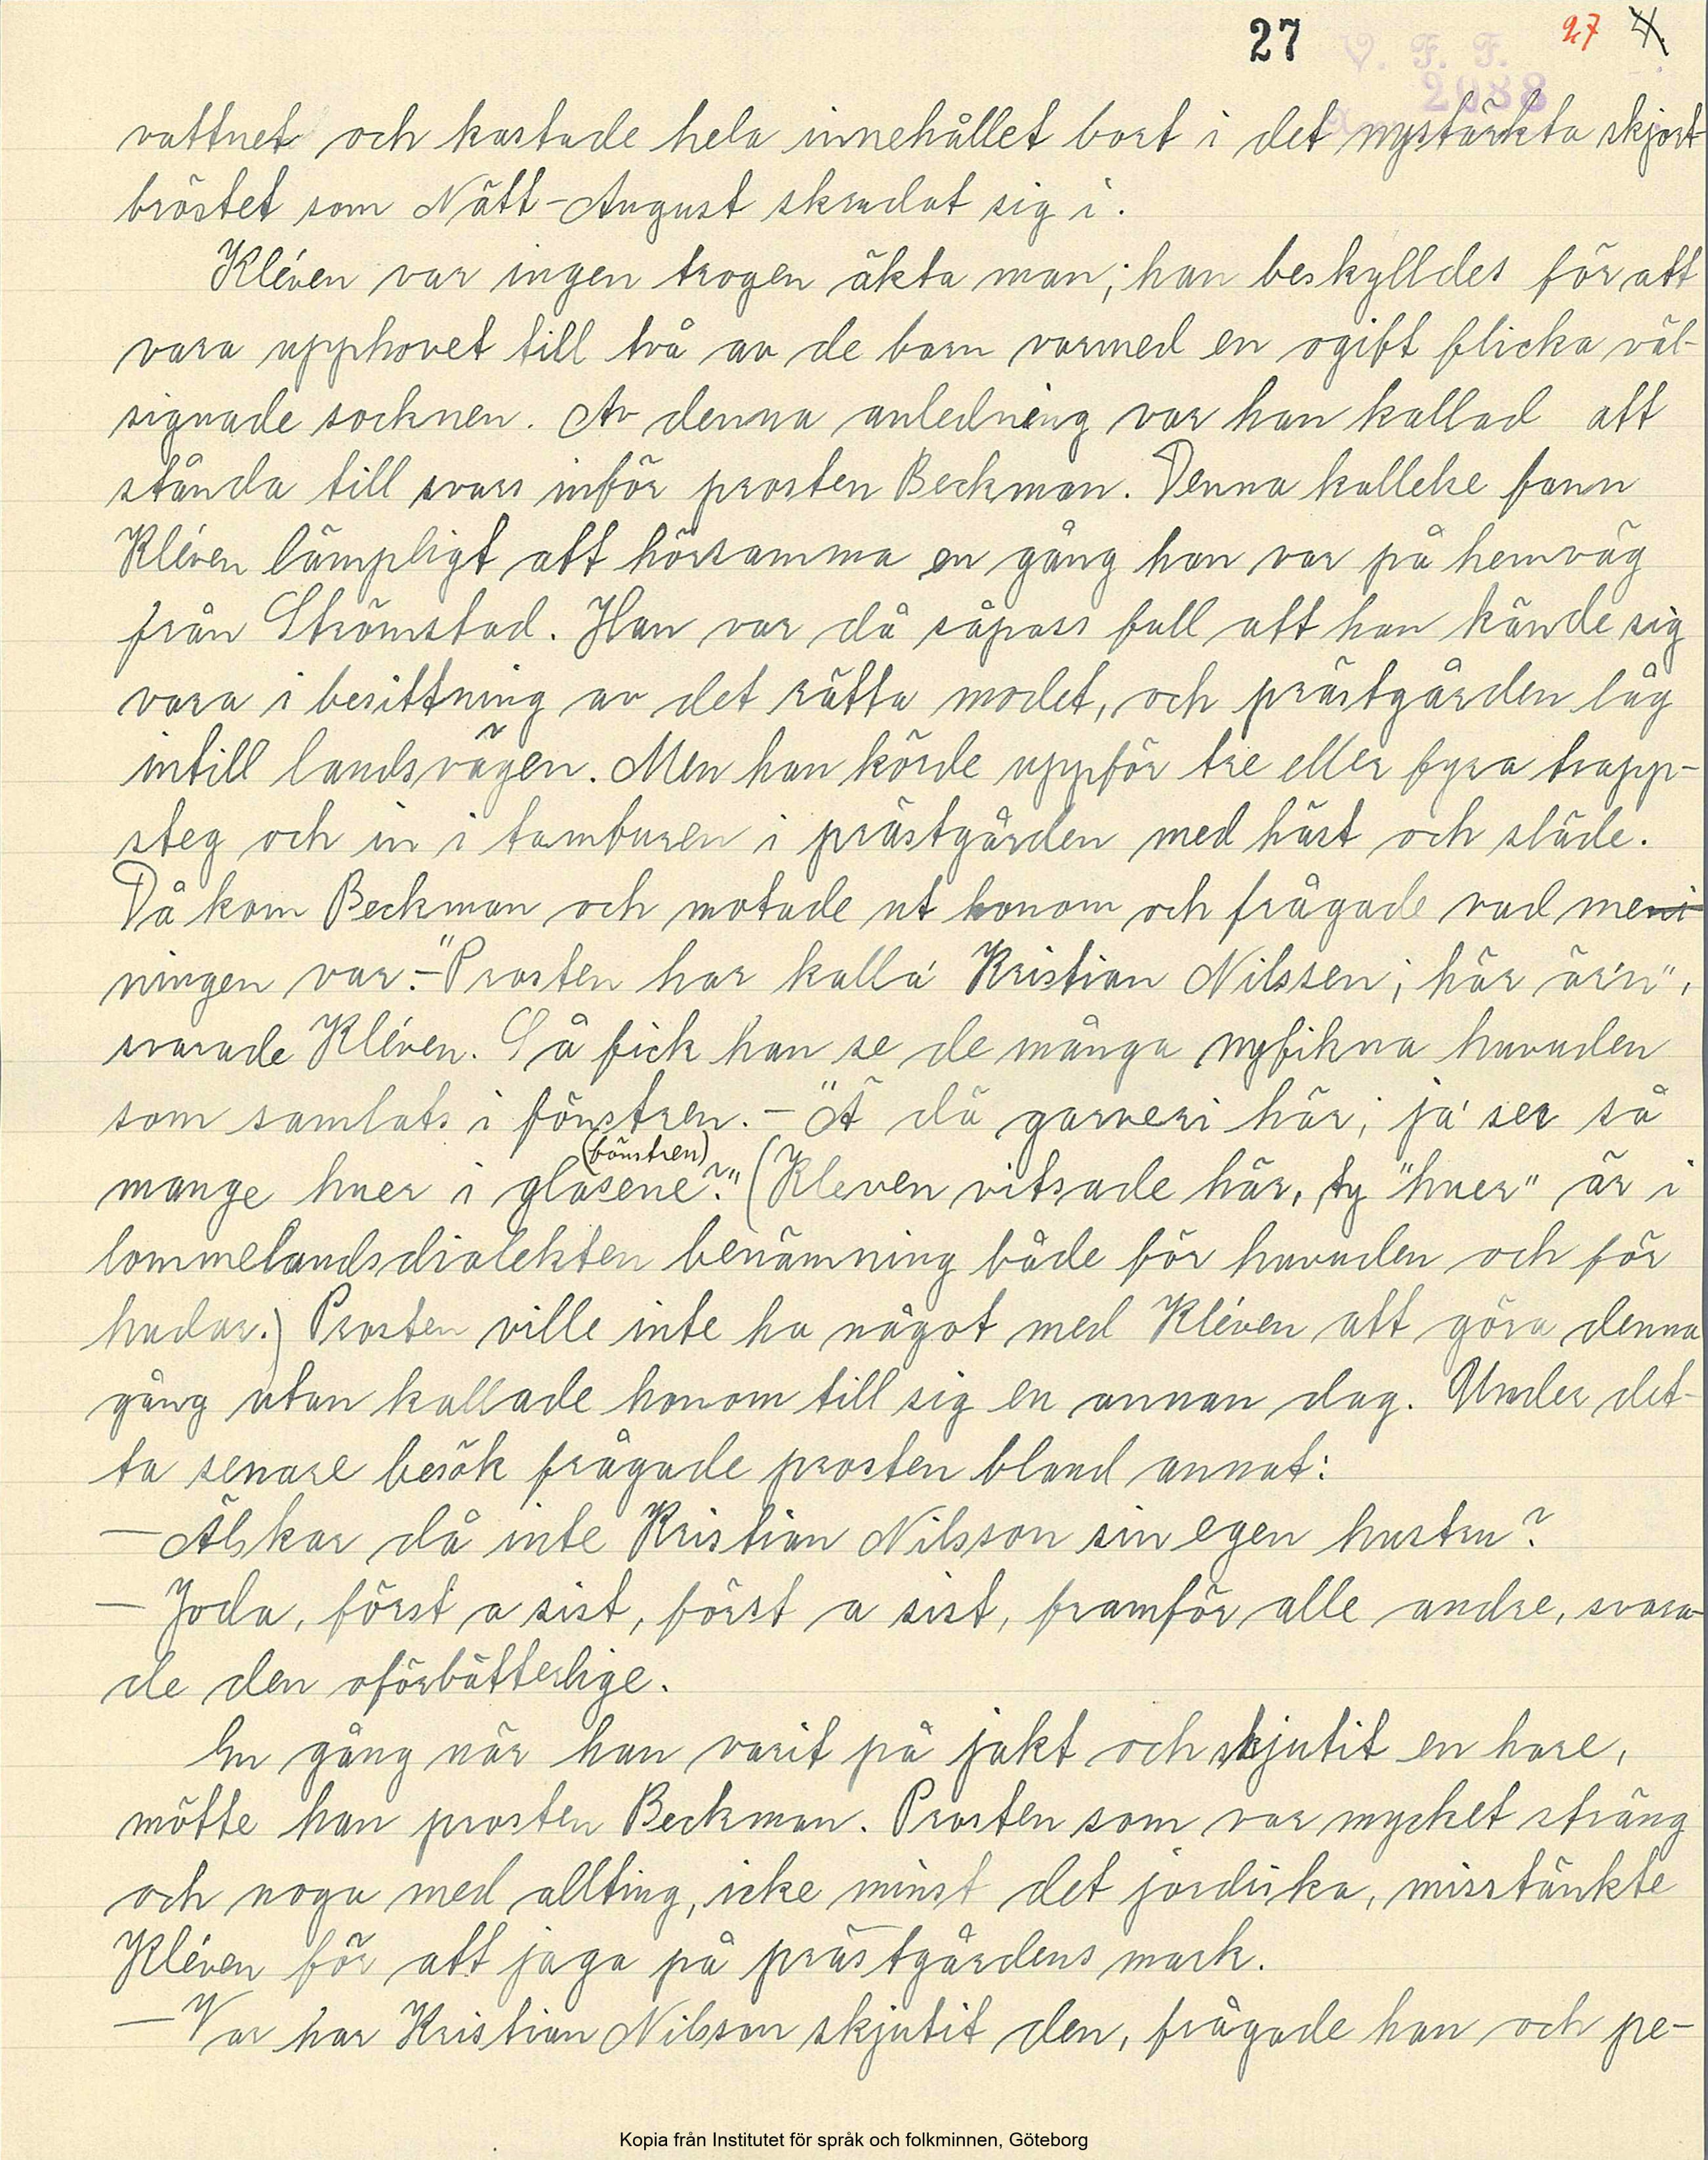 27 V. F. F. 27 4.
2088
vattnet och kastade hela innehållet bort i det nystärkta skjort-
bröstet som Nätt-August skrudat sig i.
Kléven var ingen trogen äkta man; han beskylldes för att
vara upphovet till två av de barn varmed en ogift flicka väl-
signade socknen. Av denna anledning var han kallad att
stånda till svars inför prosten Beckman. Denna kallelse fann
Kléven lämpligt att hörsamma en gång han var på hemväg
från Strömstad. Han var då såpass full att han kände sig
vara i besittning av det rätta modet, och prästgården låg
intill landsvägen. Men han körde uppför tre eller fyra trapp-
steg och in i tamburen i prästgården med häst och släde.
Då kom Beckman och motade ut honom och frågade vad meni
ningen var. - "Prosten har kalla' Kristian Nilssen; här är'n",
svarade Kléven. Så fick han se de många nyfikna huvuden
som samlats i fönstren. - "Ä dä garveri här; ja' ser så
(fönstren)
mange huer i glasene?" (Kleven vitsade här, ty "huer" är i
lommelandsdialekten benämning både för huvuden och för
hudar.) Prosten ville inte ha något med Kléven att göra denna
gång utan kallade honom till sig en annan dag. Under det-
ta senare besök frågade prosten bland annat:
— Älskar då inte Kristian Nilsson sin egen hustru?
— Joda, först a sist, först a sist, framför alle andre, svara-
de den oförbätterlige.
En gång när han varit på jakt och skjutit en hare,
mötte han prosten Beckman. Prosten som var mycket sträng
och noga med allting, icke minst det jordiska, misstänkte
Kléven för att jaga på prästgårdens mark.
— Var har Kristian Nilsson skjutit den, frågade han och pe-
Kopia från Institutet för språk och folkminnen, Göteborg